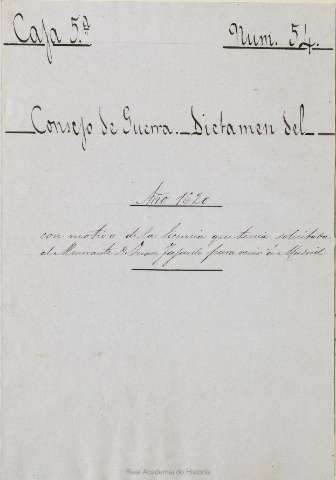 Caja 5.ª Num. 54.
Consejo de Guerra.- Dictamen del
Año 1620
con motivo de la licencia que tenia solicitada
el Almirante D. Juan Fajardo para venir á Madrid
Real Academia de Historia